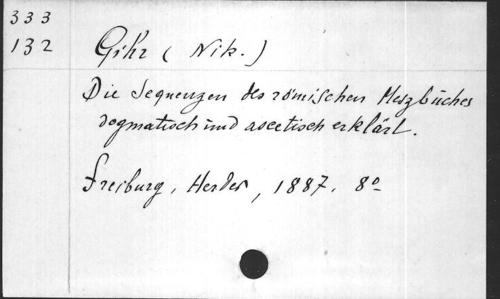 333
132
Gihr (Nik.)
Die Sequenzen des römischen Meszbuches
dogmatisch und ascetisch erklärt.
Freiburg, Herder, 1887. 8º